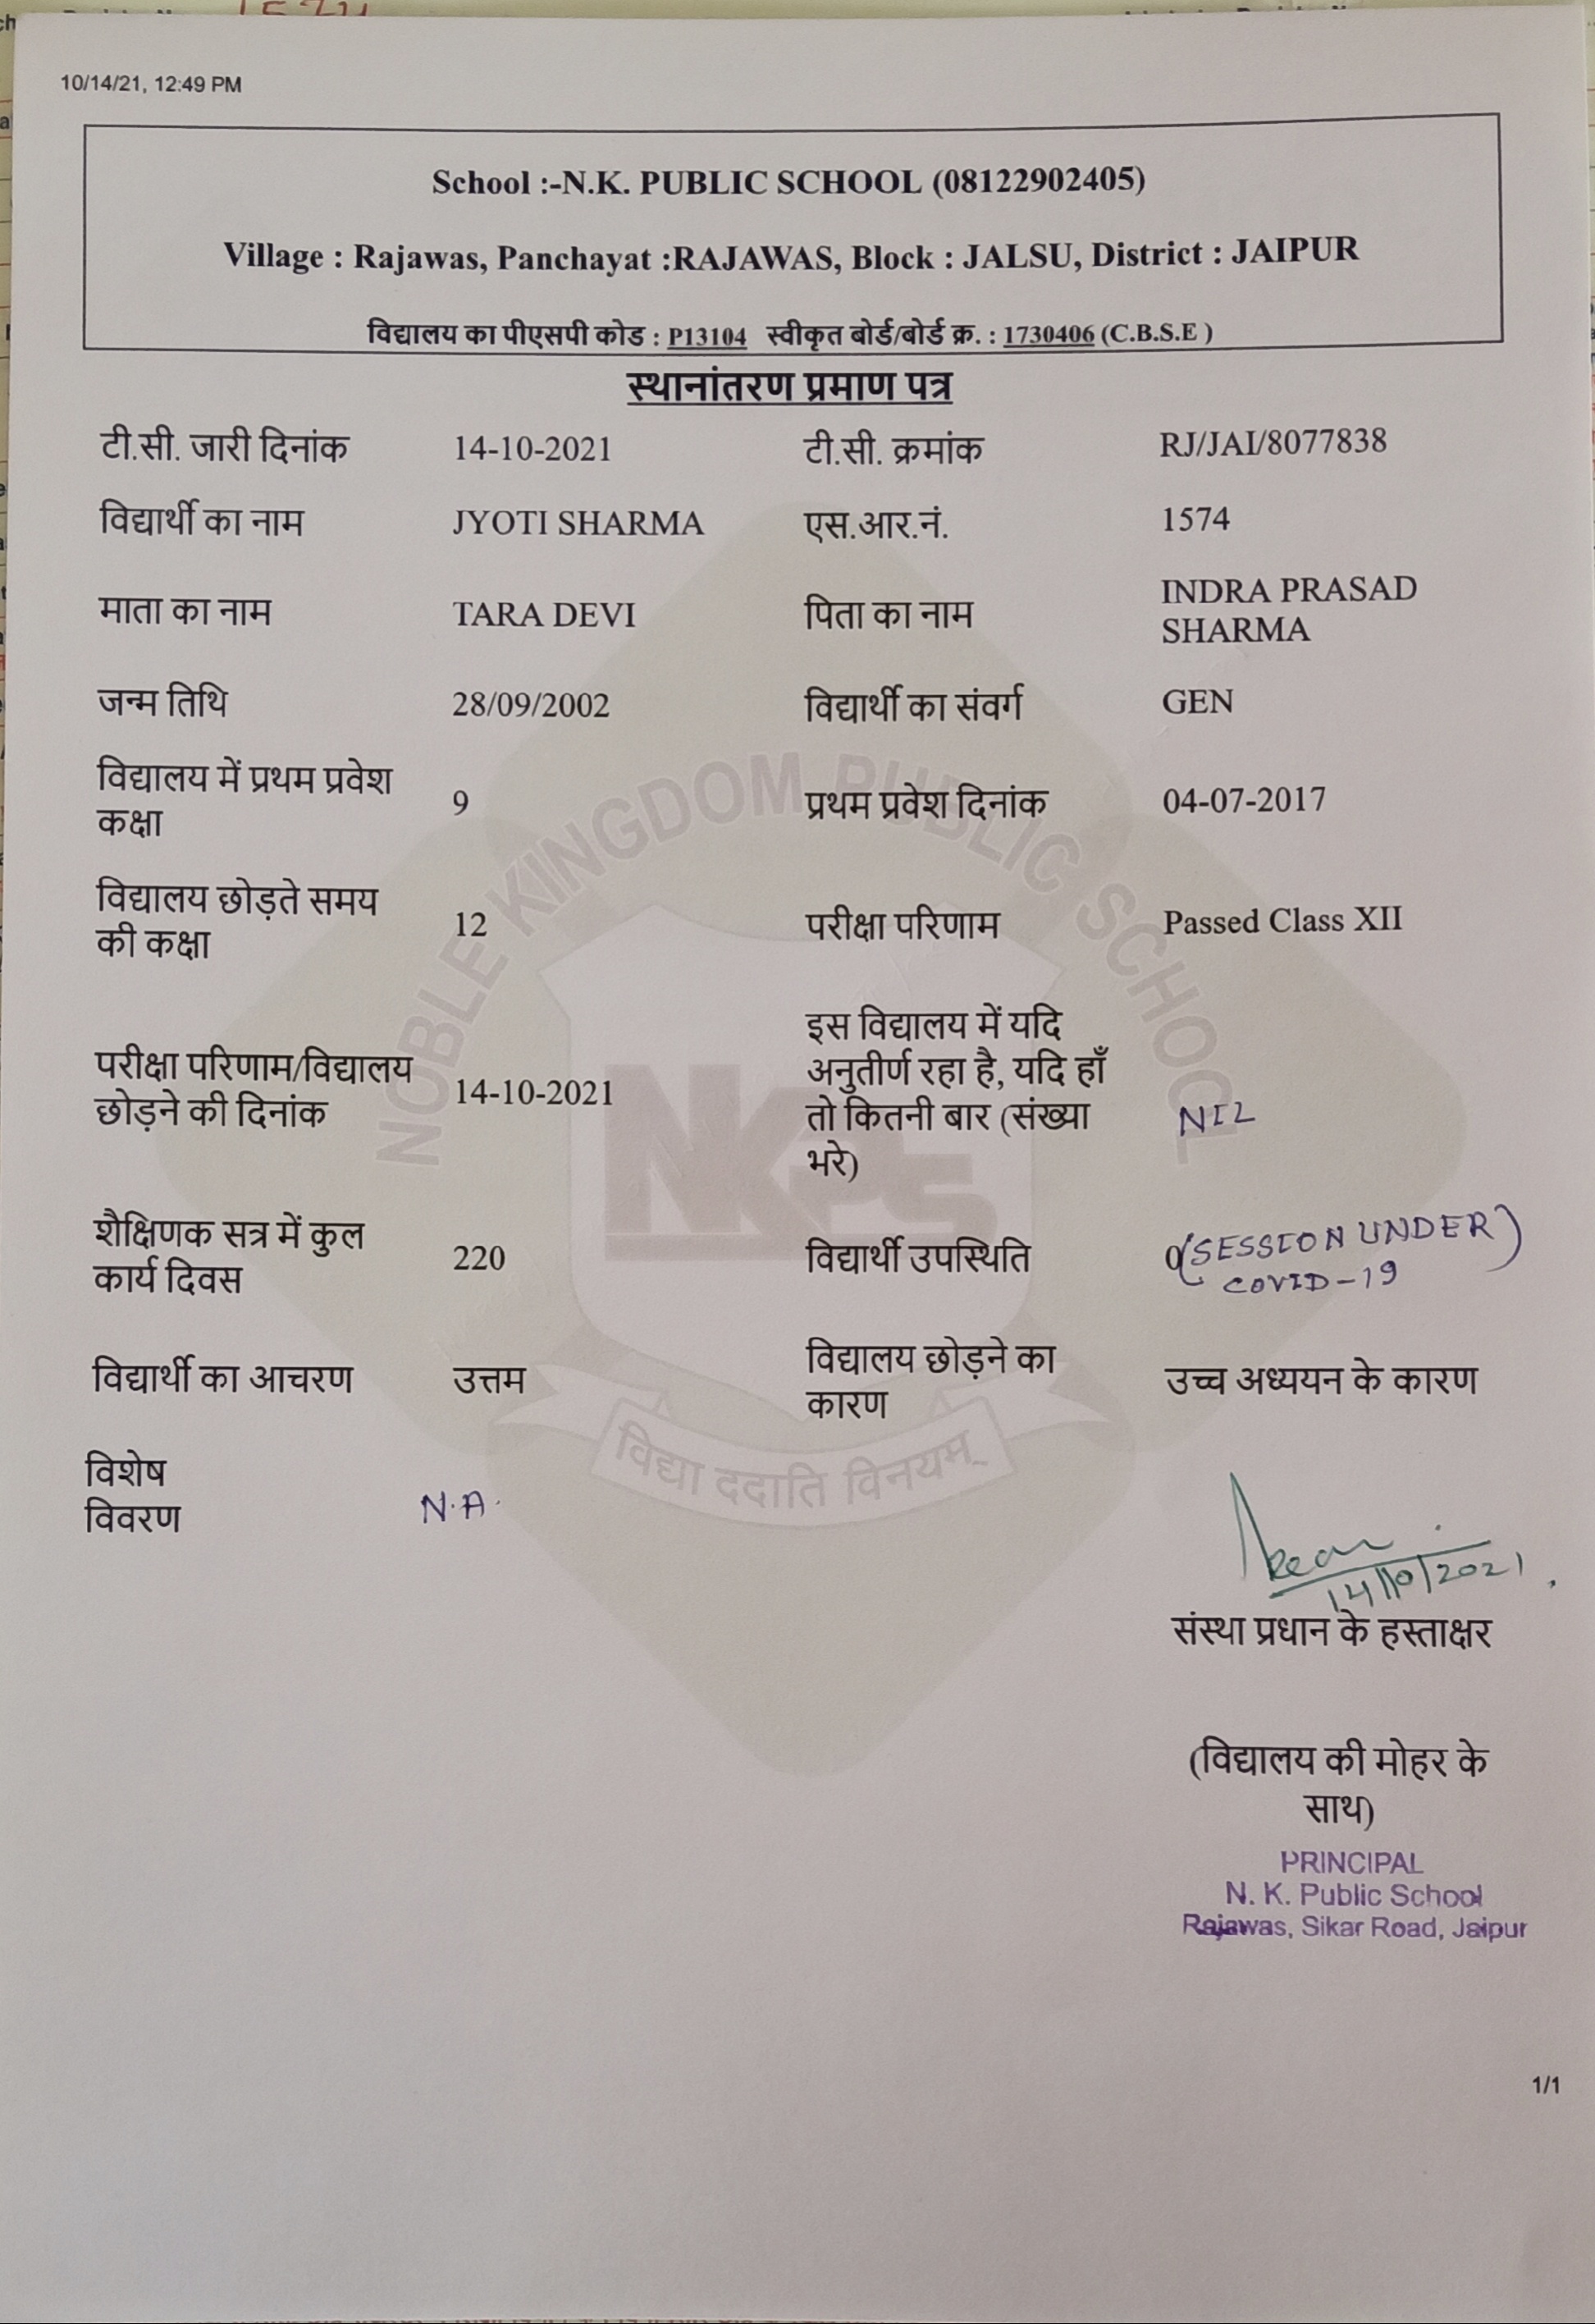 10/14/21, 12:49 PM
School :-N.K. PUBLIC SCHOOL (08122902405)
Village : Rajawas, Panchayat :RAJAWAS, Block : JALSU, District : JAIPUR
विद्यालय का पीएसपी कोड : P13104 स्वीकृत बोर्ड/बोर्ड क्र. : 1730406 (C.B.S.E )
स्थानांतरण प्रमाण पत्र
टी.सी. जारी दिनांक 14-10-2021 टी.सी. क्रमांक RJ/JAI/8077838
विद्यार्थी का नाम JYOTI SHARMA एस.आर.नं. 1574
माता का नाम TARA DEVI पिता का नाम INDRA PRASAD
SHARMA
जन्म तिथि 28/09/2002 विद्यार्थी का संवर्ग GEN
विद्यालय में प्रथम प्रवेश
कक्षा 9 प्रथम प्रवेश दिनांक 04-07-2017
विद्यालय छोड़ते समय
की कक्षा 12 परीक्षा परिणाम Passed Class XII
परीक्षा परिणाम/विद्यालय
छोड़ने की दिनांक 14-10-2021
इस विद्यालय में यदि
अनुतीर्ण रहा है, यदि हाँ
तो कितनी बार (संख्या NIL
भरे)
शैक्षिणक सत्र में कुल
कार्य दिवस 220 विद्यार्थी उपस्थिति 0 (SESSION UNDER)
COVID-19
विद्यार्थी का आचरण उत्तम
विद्यालय छोड़ने का
कारण उच्च अध्ययन के कारण
विशेष
विवरण N.A.
14/10/2021
संस्था प्रधान के हस्ताक्षर
(विद्यालय की मोहर के
साथ)
PRINCIPAL
N. K. Public School
Rajawas, Sikar Road, Jaipur
1/1
NOBLE KINGDOM PUBLIC SCHOOL
NKPS
विद्या ददाति विनयम्